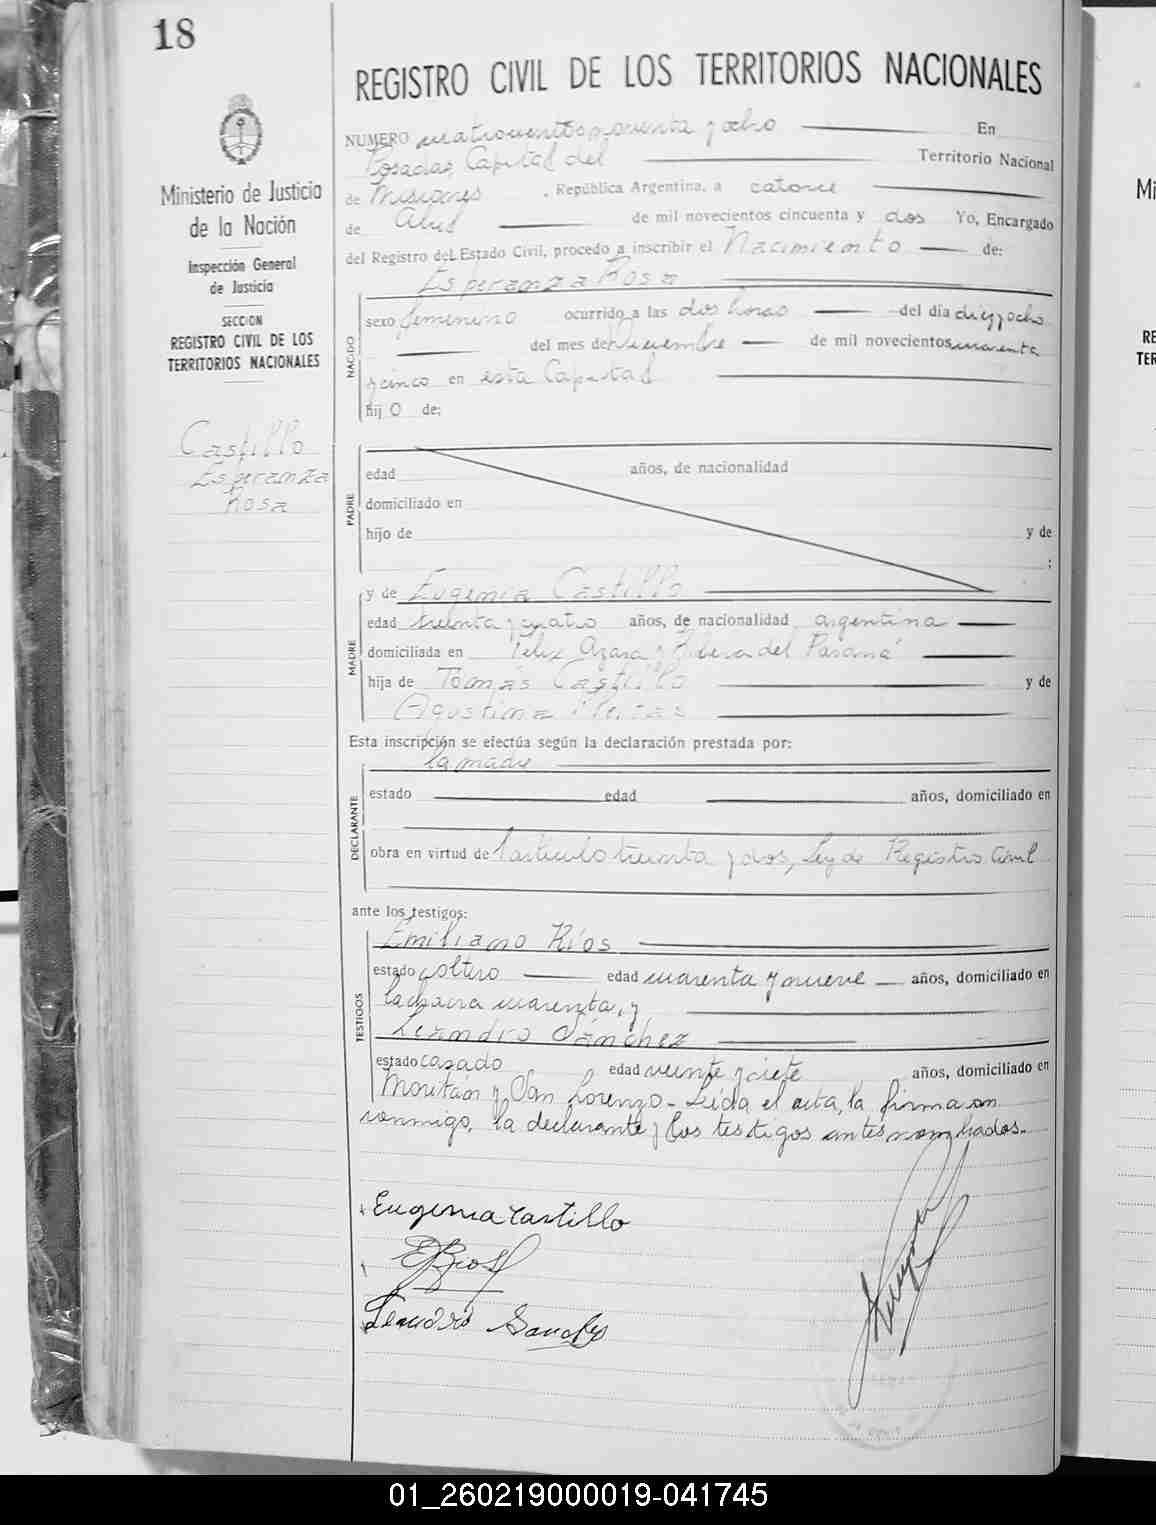 18
REGISTRO CIVIL DE LOS TERRITORIOS NACIONALES
Ministerio de Justicia
de la Nación
Inspección General
de Justicia
SECCION
REGISTRO CIVIL DE LOS
TERRITORIOS NACIONALES
Castillo
Esperanza
Rosa
NUMERO cuatrocientos noventa y ocho En
Posadas, Capital del Territorio Nacional
de Misiones , República Argentina, a catorce
de Abril de mil novecientos cincuenta y dos Yo, Encargado
del Registro del Estado Civil, procedo a inscribir el Nacimiento de:
Esperanza Rosa
NACIDO
sexo femenino ocurrido a las dos horas del día diez y ocho
del mes de Diciembre de mil novecientos cuarenta
y cinco en esta Capital
hij O de:
PADRE
edad años, de nacionalidad
domiciliado en
hijo de y de
;
MADRE
y de Eugenia Castillo
edad treinta y cuatro años, de nacionalidad argentina
domiciliada en Félix Azara y Ribera del Paraná
hija de Tomás Castillo y de
Agustina
Esta inscripción se efectúa según la declaración prestada por:
la madre
DECLARANTE
estado edad años, domiciliado en
obra en virtud de l'artículo treinta y dos, Ley de Registro Civil
ante los testigos:
TESTIGOS
Emiliano Ríos
estado soltero edad cuarenta y nueve años, domiciliado en
la chacra cuarenta, y
Leandro Sánchez
estado casado edad veinte y siete años, domiciliado en
y San Lorenzo - Leída el acta, la firman
conmigo, la declarante y los testigos antes nombrados.-
Eugenia Castillo
E Rios
Leandro Sanchez
01_260219000019-041745